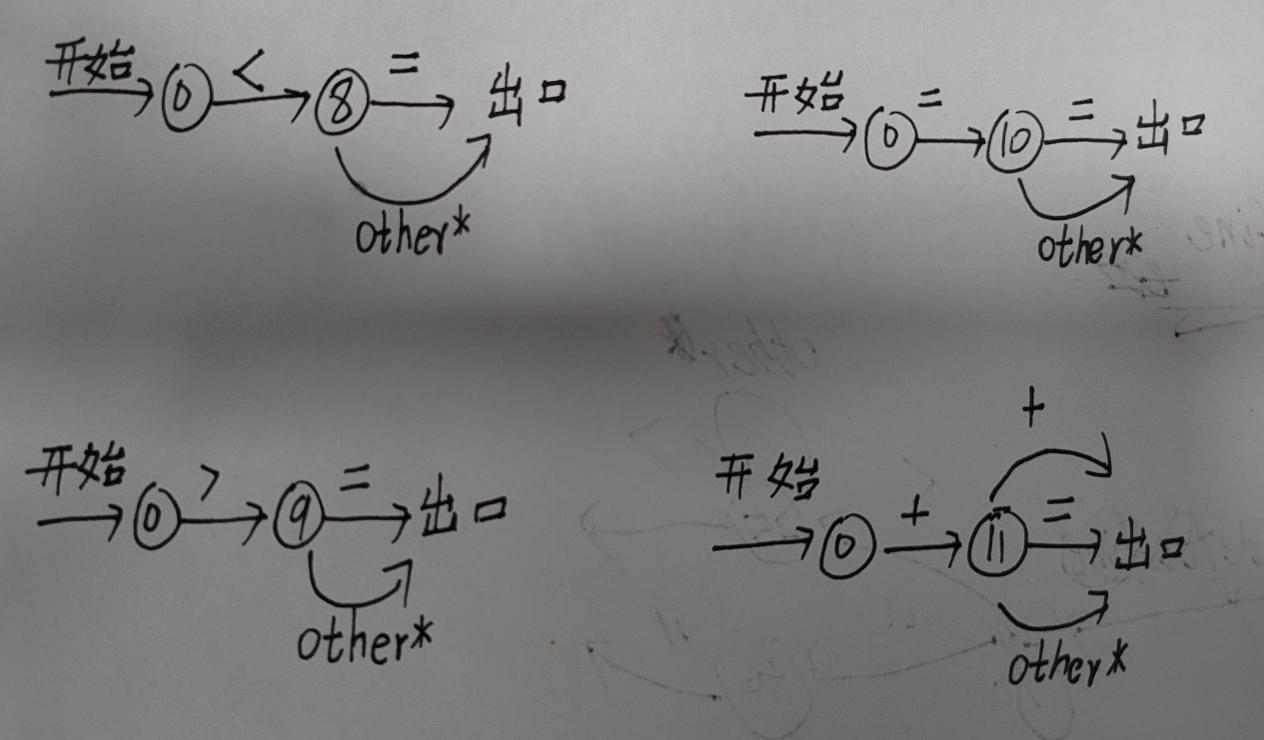 开始 0 < 8 = 出口
other*
开始 0 = 10 = 出口
other*
开始 0 > 9 = 出口
other*
+
开始 0 + 11 = 出口
other*